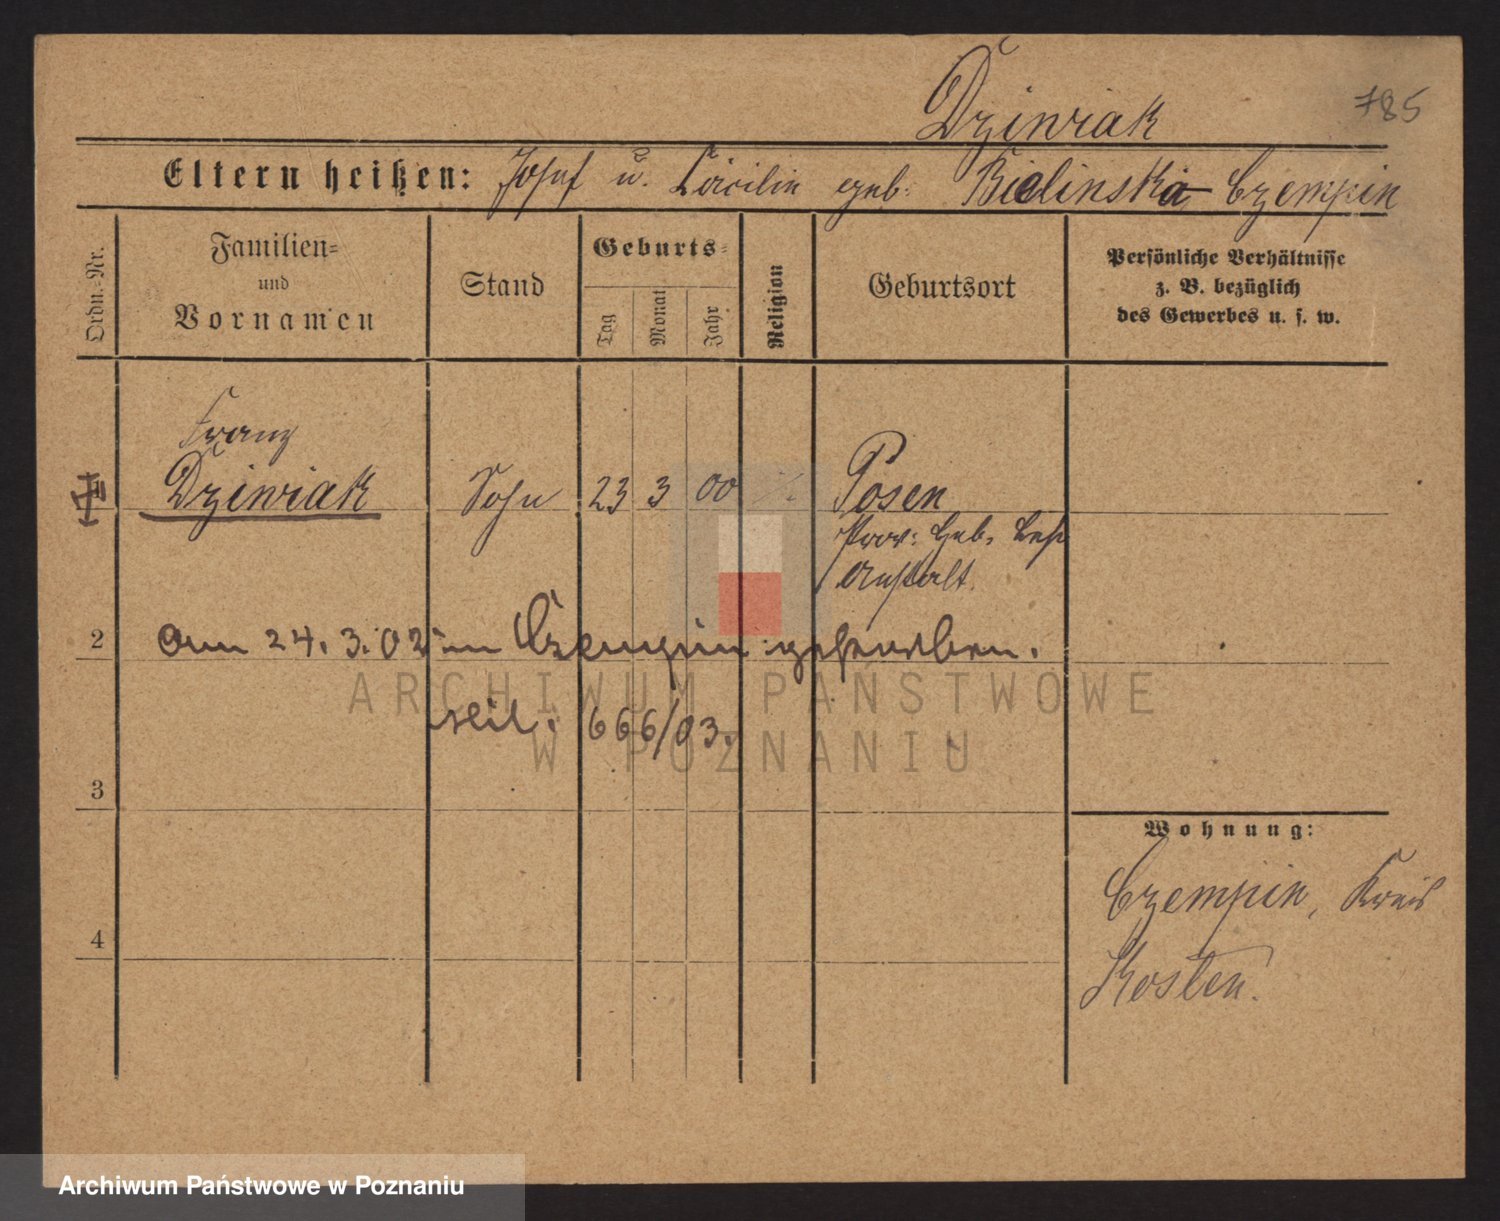 Dziwiak
785
Eltern heißen: Josef u. Cäcilie geb. Bielinska Czempin
Ordn.-Nr.
Familien-
und
Vornamen
Stand
Geburts-
Tag
Monat
Jahr
Religion
Geburtsort
Persönliche Verhältnisse
z. B. bezüglich
des Gewerbes u. s. w.
Franz
Dziwiak Sohn 23 3 00 Posen
Prov: Heb.
Anstalt.
2 am 24.3.02 in Czempin gestorben.
666/03.
3
Wohnung:
Czempin, Kreis
Kosten.
4
ARCHIWUM PAŃSTWOWE
W POZNANIU
Archiwum Państwowe w Poznaniu